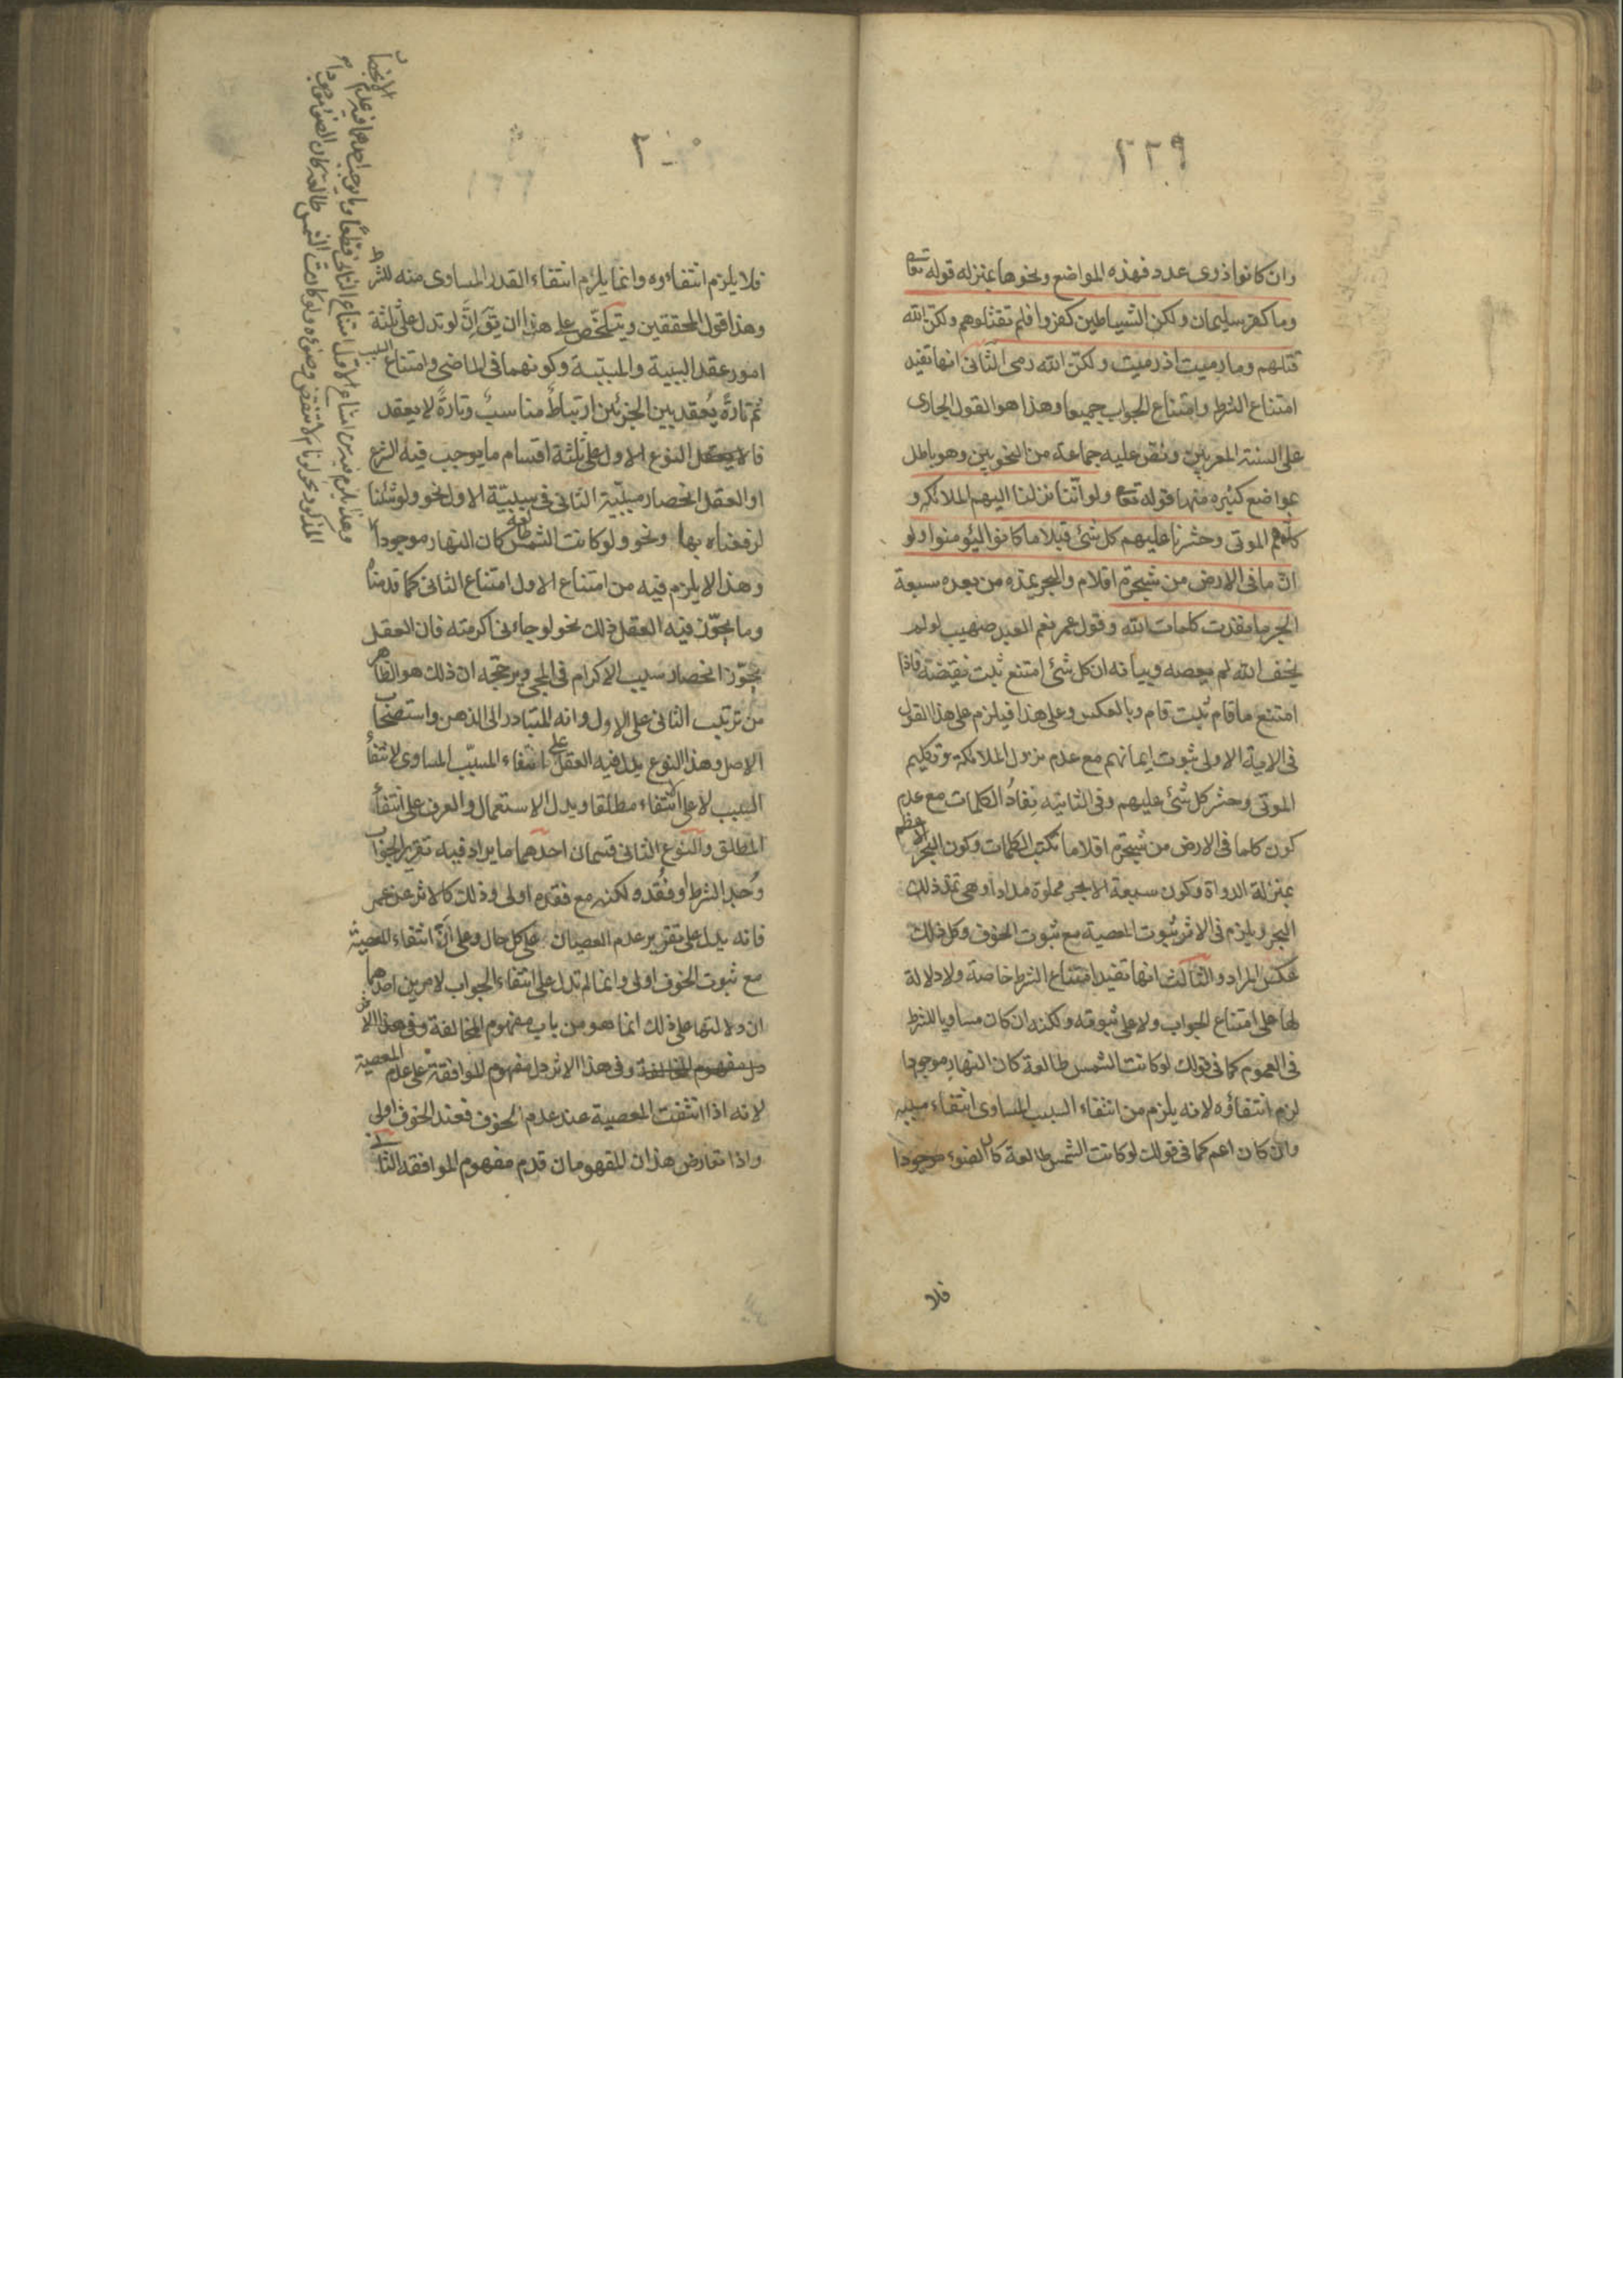 ٢٢٩
وان كانوا ذوى عدد فهذه المواضع ونحوها بمنزله قوله تعا
وما كفر سليمان ولكن الشياطين كفروا فلم تقتلوهم ولكن الله
قتلهم وما رميت اذ رميت ولكن الله رمى الثانى انها تفيد
امتناع الشرط وامتناع الجواب جميعا وهذا هو القول الجارى
على السنة المعربين ونص عليه جماعة من النحويين وهو باطل
بمواضع كثيره منها قوله تعا ولو اننا نزلنا اليهم الملائكه و
كلمهم الموتى وحشرنا عليهم كل شئ قبلا ما كانوا ليؤمنوا ولو
ان ما فى الارض من شجرة اقلام والبحر يمده من بعده سبعة
ابحر ما نفدت كلمات الله وقول عمر نعم العبد صهيب لو لم
يخف الله لم يعصه وبيانه ان كل شئ امتنع ثبت نقيضه فاذا
امتنع ما قام ثبت قام وبالعكس وعلى هذا فيلزم على هذا القول
فى الاية الاولى ثبوت ايمانهم مع عدم نزول الملائكة وتكليم
الموتى وحشر كل شئ عليهم وفى الثانية نفاد الكلمات مع عدم
كون كلما فى الارض من شجرة اقلاما تكتب الكلمات وكون البحر الاعظم
بمنزلة الدواة وكون سبعة الابحر مملوة مدادا وهى تمد ذلك
البحر ويلزم فى الاثر ثبوت المعصية مع ثبوت الخوف وكل ذلك
عكس المراد والثالث انها تفيد امتناع الشرط خاصة ولا دلالة
لها على امتناع الجواب ولا على ثبوته ولكنه ان كان مساويا للشرط
فى العموم كما فى قولك لو كانت الشمس طالعة كان النهار موجودا
لزم انتفاؤه لانه يلزم من انتفاء السبب المساوى انتفاء مسببه
وان كان اعم كما فى قولك لو كانت الشمس طالعة كان الضوء موجودا
فلا
فلا يلزم انتفاءوه وانما يلزم انتفاء القدر المساوى منه للشرط
وهذا قول المحققين ويتلخص على هذا ان يق ان لو تدل على ثلثة
امور عقد السببية والمسببية وكونهما فى الماضى وامتناع السبب
ثم تارة يعقد بين الجزئين ارتباط مناسب وتارة لا يعقد
فالنوع الاول على ثلثة اقسام ما يوجب فيه الشرع
او العقل انحصار مسببية الثانى فى سببية الاول نحو ولو شئنا
لرفعناه بها ونحو ولو كانت الشمس طالعة كان النهار موجودا
وهذا لا يلزم فيه من امتناع الاول امتناع الثانى كما قدمنا
وما يجوز فيه العقل ذلك نحو لو جاءنى اكرمته فان العقل
يجوز انحصار سبب الاكرام فى المجى ويرجحه ان ذلك هو الظاهر
من ترتيب الثانى على الاول وانه المتبادر الى الذهن واستصحاب
الاصل وهذا النوع يدل فيه العقل على انتفاء المسبب المساوى لانتفاء
السبب لا على الانتفاء مطلقا ويدل الاستعمال والعرف على انتفاء
المطلق والنوع الثانى قسمان احدهما ما يراد فيه تقرير الجواب
وجد الشرط او فقد ولكنه مع فقده اولى وذلك كالاثر عن عمر
فانه يدل على تقرير عدم العصيان على كل حال وعلى ان انتفاء المعصية
مع ثبوت الخوف اولى وانما لم تدل على انتفاء الجواب لامرين احدهما
ان دلالتها على ذلك انما هو من باب مفهوم المخالفة وفى هذا الاثر
دل مفهوم المخالفة وفى هذا الاثر دل مفهوم الموافقة على عدم المعصية
لانه اذا انتفت المعصية عند عدم الخوف فعند الخوف اولى
واذا تعارض هذان المفهومان قدم مفهوم الموافقه الثانى